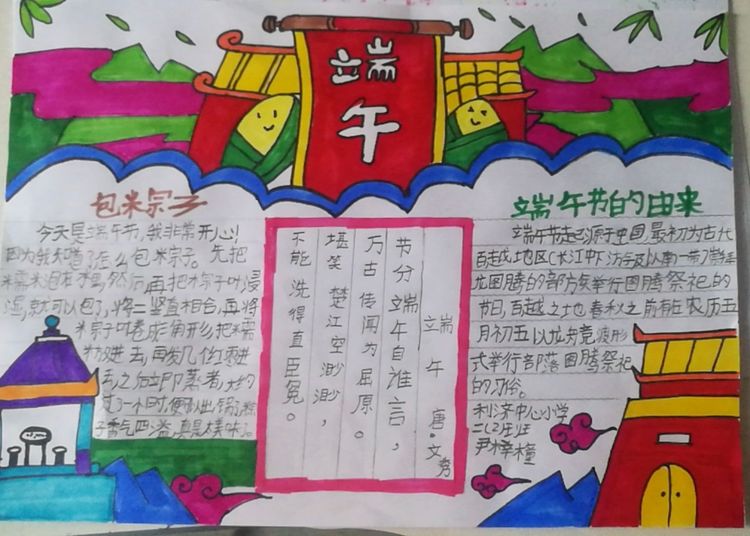 端
午
包米宗子
今天是端午节,我非常开心!
因为我知道了怎么包米宗子。先把
糯米泡在水里,然后再把米宗子叶浸
湿,就可以包了,将二竖直相合,再将
米宗子叶卷成角开形,把糯
去,之后立即蒸煮,大约
过了一小时,便可以出锅了,粽
子香气四溢,真是美味了。
端午
唐·文秀
节分端午自谁言,
万古传闻为屈原。
堪笑楚江空渺渺,
不能洗得直臣冤。
端午节的由来
端午节起源于中国,最初为古代
百越地区(长江中下游及以南一带)崇拜
龙图腾的部族举行图腾祭祀的
节日,百越之地春秋之前有在农历五
月初五以龙舟竞渡形
式举行部落图腾祭祀
的习俗。
利济中心小学
二(2)班班